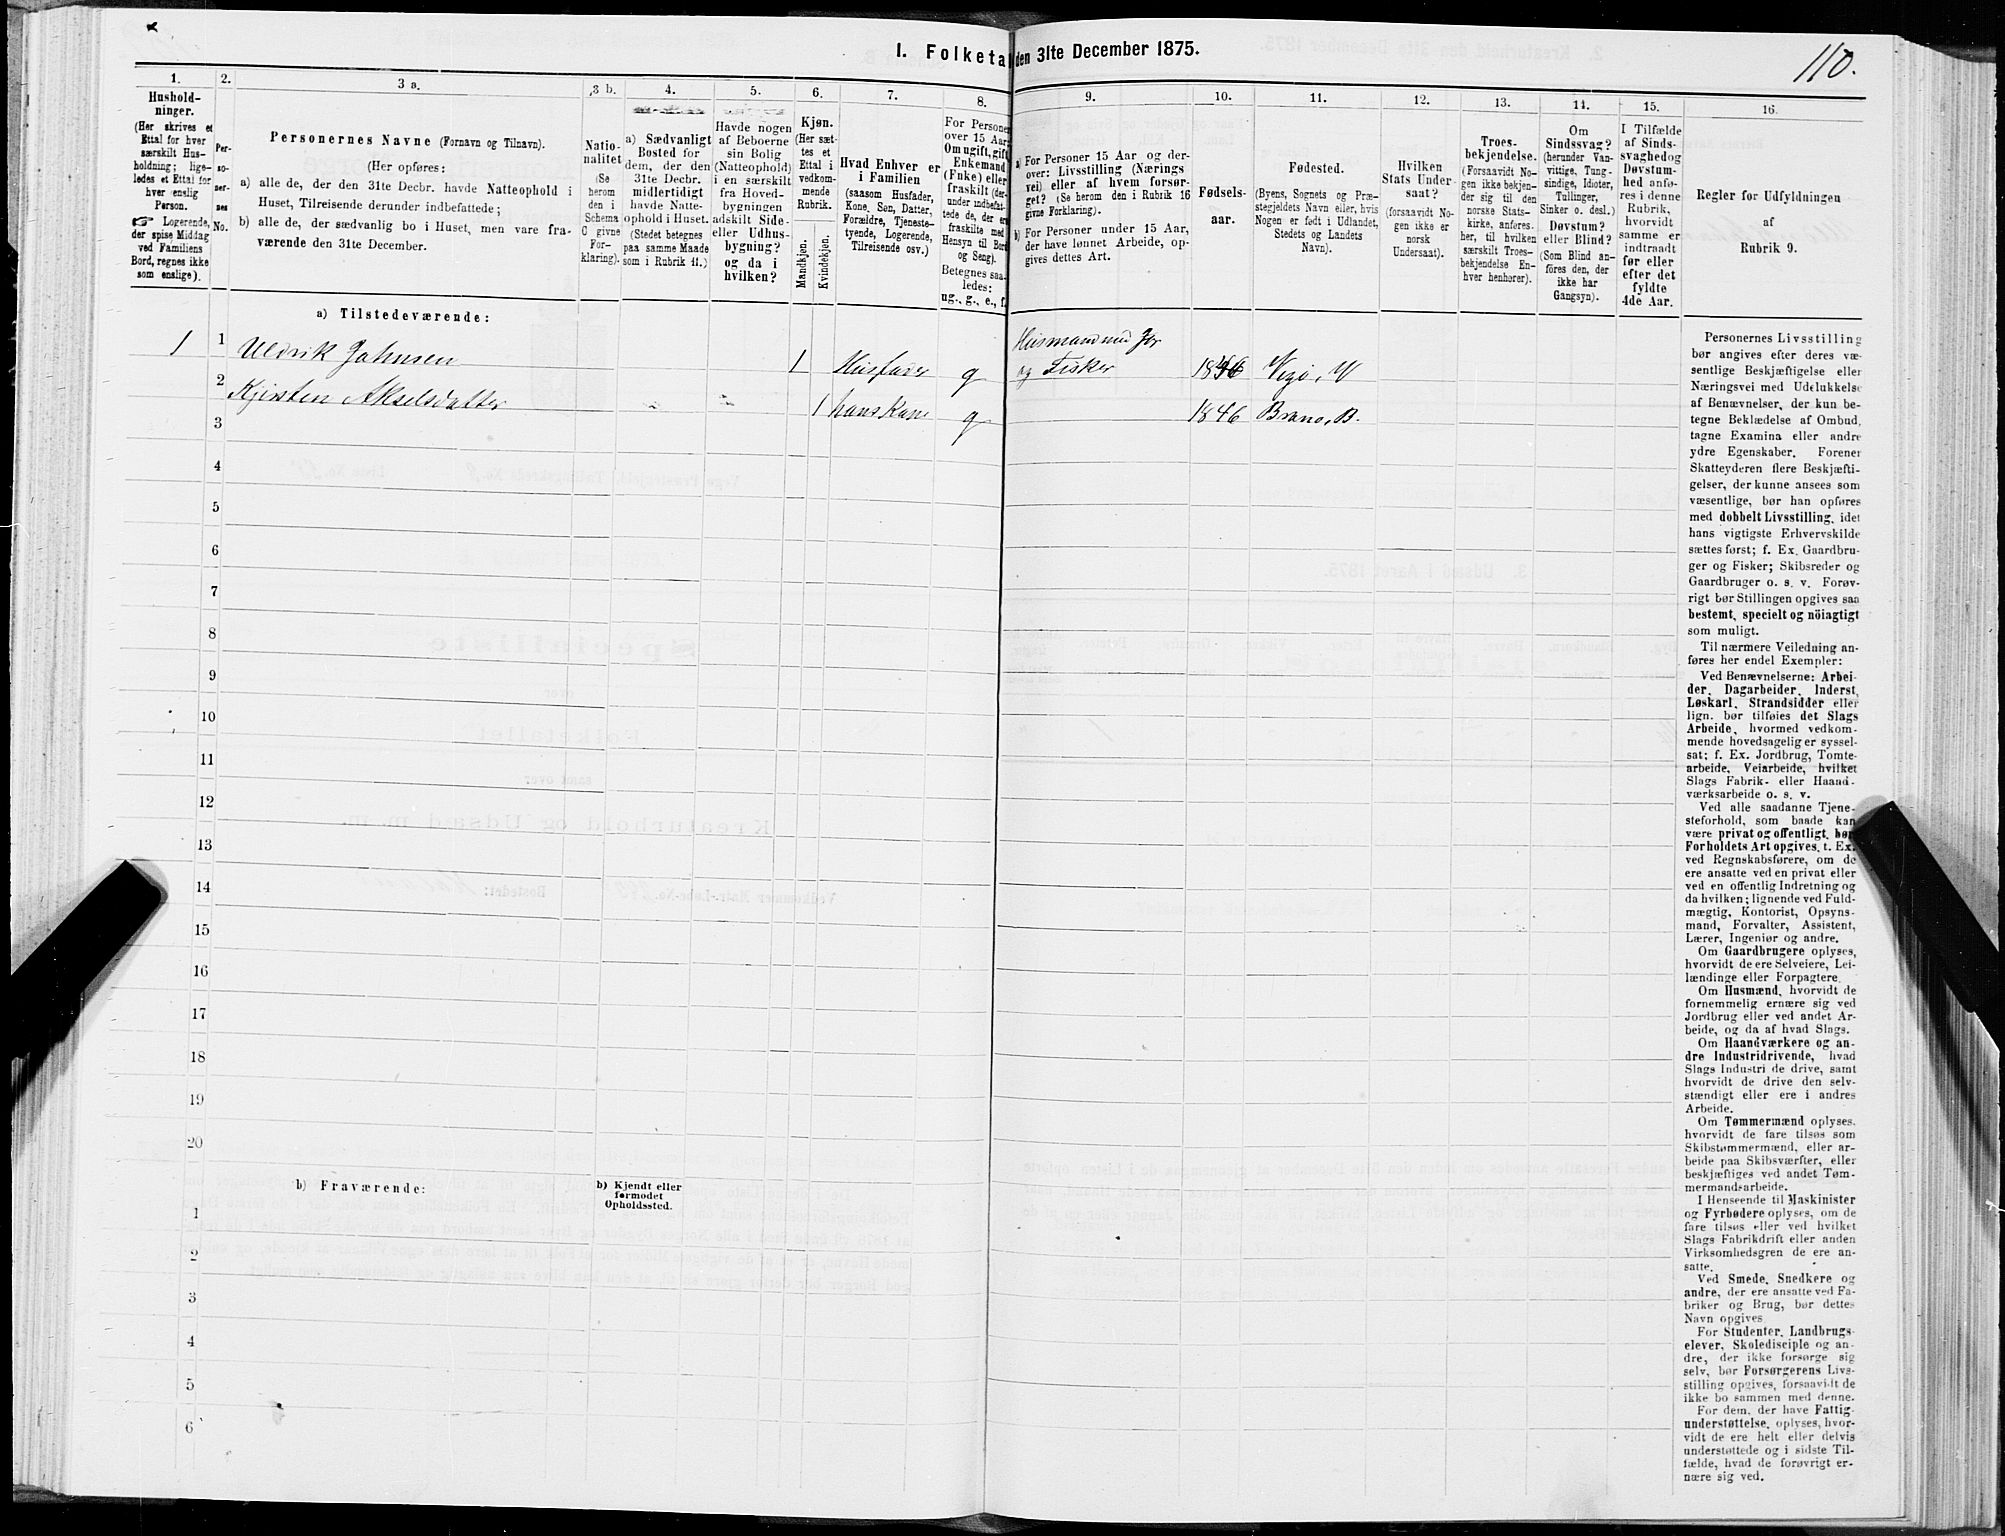 110.
I. Folketal den 31te December 1875.
1.
Hushold-
ninger.
(Her skrives et
Ettal for hver
særskilt Hus-
holdning; lige-
ledes et Ettal for
hver enslig
Person.
☞ Logerende,
der spise Middag
ved Familiens
Bord, regnes ikke
som enslige).
2.
Per-
so-
ner-
nes
No.
3 a.
Personernes Navne (Fornavn og Tilnavn).
(Her opføres:
a) alle de, der den 31te Decbr. havde Natteophold i
Huset, Tilreisende derunder indbefattede;
b) alle de, der sædvanlig bo i Huset, men vare fra-
værende den 31te December.
3 b.
Natio-
nalitet
(Se
herom
den i
Schema
C givne
For-
klaring).
4.
a) Sædvanligt
Bosted for
dem, der den
31te Decbr.
midlertidigt
havde Natte-
ophold i Huset.
(Stedet betegnes
paa samme Maade
som i Rubrik 11.)
5.
Havde nogen
af Beboerne
sin Bolig
(Natteophold)
i en særskilt
fra Hoved-
bygningen
adskilt Side-
eller Udhus-
bygning?
og da i
hvilken?
6.
Kjøn.
(Her sæt-
tes et
Ettal i
vedkom-
mende
Rubrik.
Mandkjøn.
Kvindekjøn.
7.
Hvad Enhver er
i Familien
(saasom Husfader,
Kone, Søn, Datter,
Forældre, Tjeneste-
tyende, Logerende,
Tilreisende osv.)
8.
For Personer
over 15 Aar:
Om ugift, gift,
Enkemand
(Enke) eller
fraskilt (der-
under indbefat-
tede de, der ere
fraskilte med
Hensyn til Bord
og Seng).
Betegnes saa-
ledes:
ug., g., e., f.
9.
a) For Personer 15 Aar og der-
over: Livsstilling (Nærings
vei) eller af hvem forsør-
get? (Se herom den i Rubrik 16
givne Forklaring).
b) For Personer under 15 Aar,
der have lønnet Arbeide, op-
gives dettes Art.
10.
Fødsels-
aar.
11.
Fødested.
(Byens, Sognets og Præ-
stegjeldets Navn eller, hvis
Nogen er født i Udlandet,
Stedets og Landets
Navn).
12.
Hvilken
Stats Under
saat?
(forsaavidt No-
gen ikke er
norsk
Undersaat).
13.
Troes-
bekjendelse.
(Forsaavidt No-
gen ikke bekjen-
der sig til den
norske Stats-
kirke, anføres-
her, til hvilken
særskilt Troes-
bekjendelse En-
hver henhører).
11.
Om
Sindssvag?
(herunder Van-
vittige, Tung-
sindige, Idioter,
Tullinger,
Sinker o. desl.)
Døvstum?
eller Blind?
(Som Blind an-
føres den, der
ikke har
Gangsyn).
15.
I Tilfælde
af Sinds-
svaghed og
Døvstum-
hed anfø-
res i denne
Rubrik,
hvorvidt
samme er
indtraadt
før eller
efter det
fyldte
4de Aar.
16.
Regler for Udfyldningen
af
Rubrik 9.
a) Tilstedeværende:
1 1 Uldrik Johnsen 1 Husfader g Husmand med Jor
og Fisker Vegø, V
2 Kjirsten Akselsdatter 1 hans Kone g 1846 Brønø, B.
3
4
5
6
7
8
9
10
11
12
13
14
15
16
17
18
19
20
b) Fraværende:
b) Kjendt eller
formodet
Opholdssted.
1
2
3
4
5
6
Personernes Livsstilling
bør angives efter deres væ-
sentlige Beskjæftigelse eller
Næringsvei med Udelukkelse
af Benævnelser, der kun be-
tegne Beklædelse af Ombud,
tagne Examina eller andre
ydre Egenskaber. Forener
Skatteyderen flere Beskjæfti-
gelser, der kunne ansees som
væsentlige, bør han opføres
med dobbelt Livsstilling, idet
hans vigtigste Erhvervskilde
sættes først; f. Ex. Gaardbru-
ger og Fisker; Skibsreder og
Gaardbruger o. s. v. Forøv-
rigt bør Stillingen opgives saa
bestemt, specielt og nöiagtigt
som muligt.
Til nærmere Veiledning an-
føres her endel Exempler:
Ved Benævnelserne: Arbei-
der, Dagarbeider, Inderst,
Løskarl, Strandsidder eller
lign. bør tilføies det Slags
Arbeide, hvormed vedkom-
mende hovedsagelig er syssel-
sat; f. Ex. Jordbrug, Tomte-
arbeide, Veiarbeide, hvilket
Slags Fabrik- eller Haand-
værksarbeide o. s. v.
Ved alle saadanne Tjene-
steforhold, som baade kan
være privat og offentligt, bør
Forholdets Art opgives, t. Ex.
ved Regnskabsførere, om de
ere ansatte ved en privat eller
ved en offentlig Indretning og
da hvilken; lignende ved Fuld-
mægtig, Kontorist, Opsyns-
mand, Forvalter, Assistent,
Lærer, Ingeniør og andre.
Om Gaardbrugere oplyses,
hvorvidt de ere Selveiere, Lei-
lændinge eller Forpagtere.
Om Husmænd, hvorvidt de
fornemmelig ernære sig ved
Jordbrug eller ved andet Ar-
beide, og da af hvad Slags.
Om Haandværkere og an-
dre Industridrivende, hvad
Slags Industri de drive, samt
hvorvidt de drive den selv-
stændigt eller ere i andres
Arbeide.
Om Tømmermænd oplyses,
hvorvidt de fare tilsøs som
Skibstømmermænd, eller ar-
beide paa Skibsværfter, eller
beskjæftiges ved andet Tøm-
mermandsarbeide.
I Henseende til Maskinister
og Fyrbødere oplyses, om de
fare tilsøs eller ved hvilket
Slags Fabrikdrift eller anden
Virksomhedsgren de ere an-
satte.
Ved Smede, Snedkere og
andre, der ere ansatte ved Fa-
briker og Brug, bør dettes
Navn opgives
For Studenter, Landbrugs-
elever, Skoledisciple og an-
dre, der ikke forsørge sig
selv, bør Forsørgerens Livs-
stilling opgives, forsaavidt de
ikke bo sammen med denne.
For dem, der have Fattig-
understøttelse, oplyses, hvor-
vidt de ere helt eller delvis
understøttede og i sidste Til-
fælde, hvad de forøvrigt er-
nære sig ved.